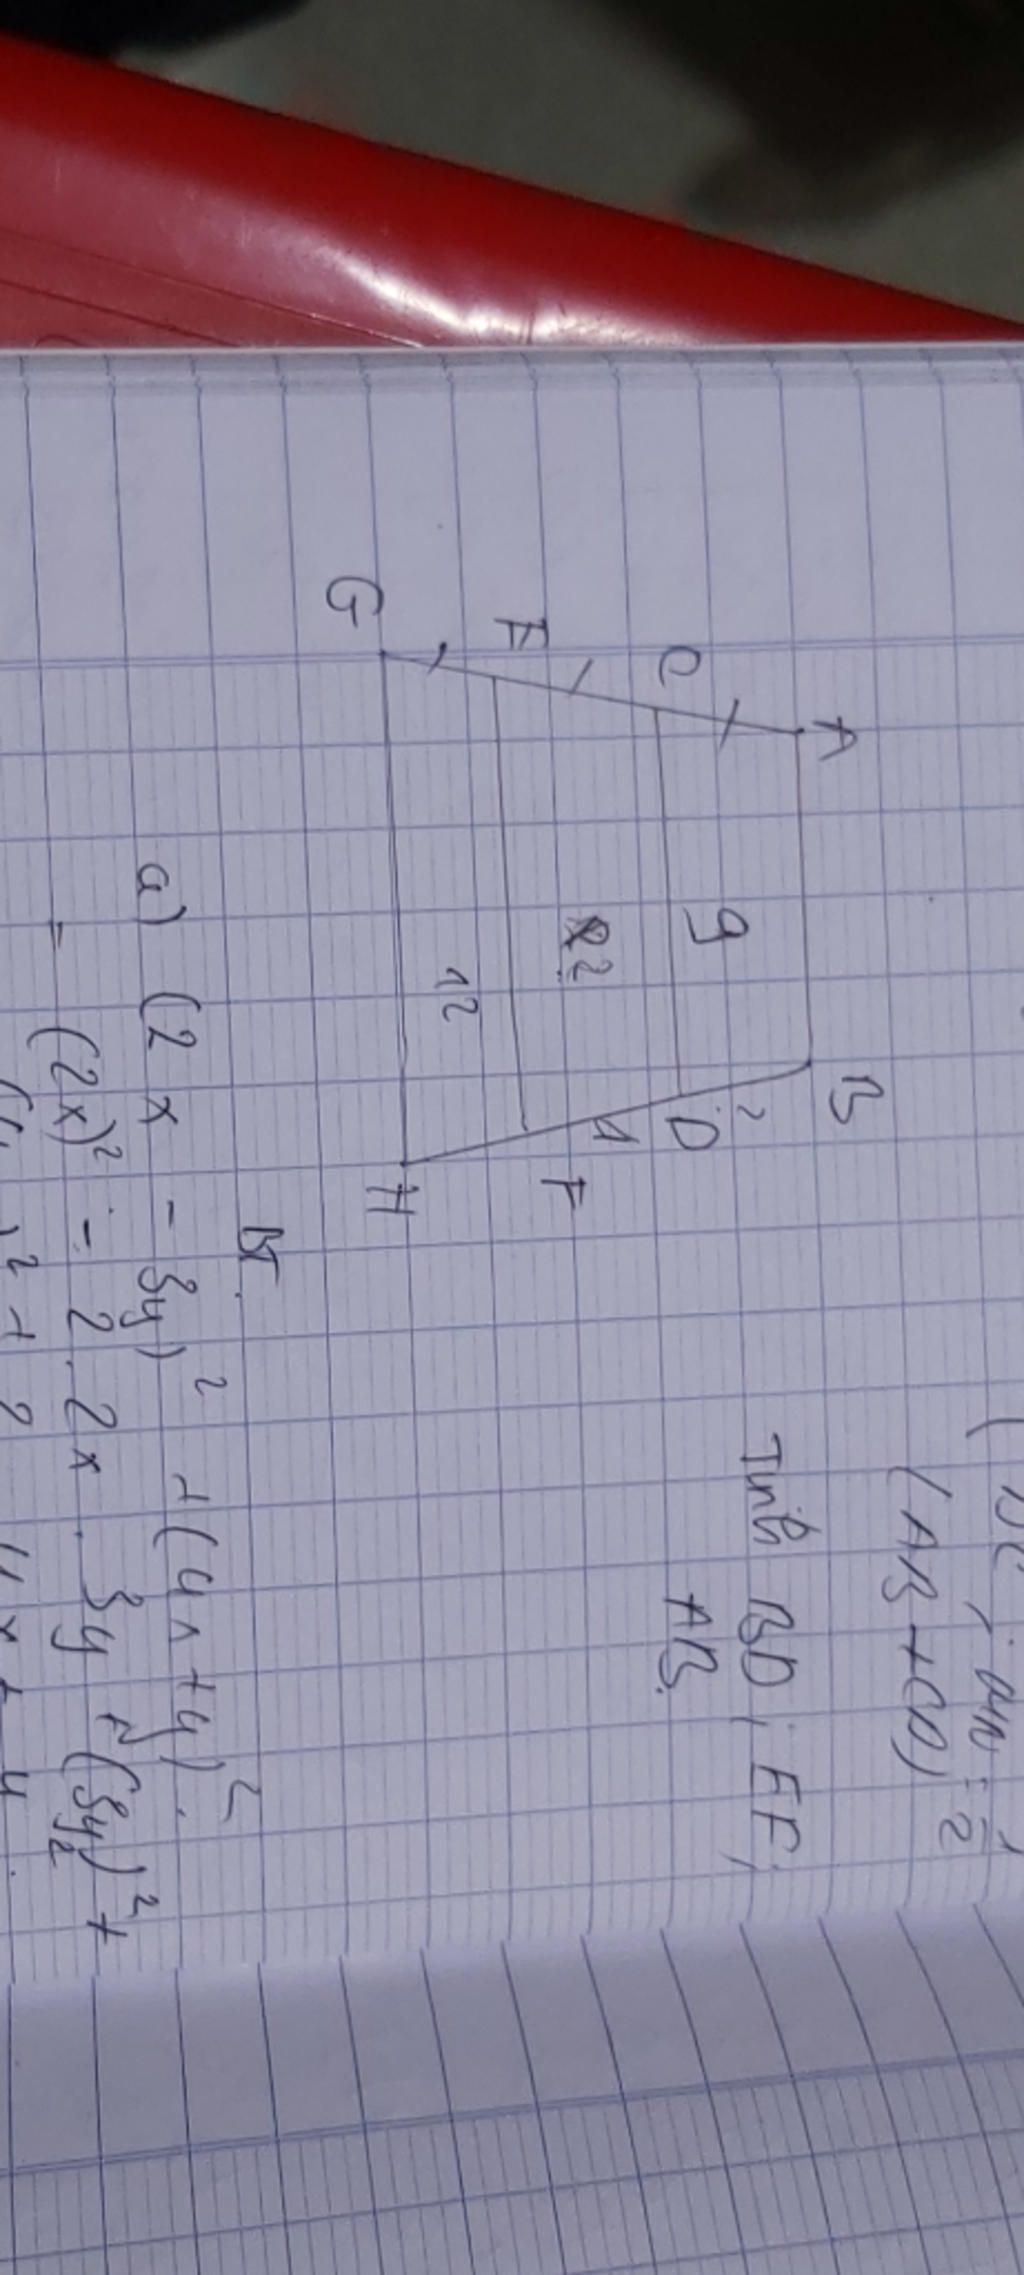 (AB + CD)
Tính BD, EF,
AB.
A B
2
9
C D
1
22
E F
12
G H
BT
a) (2x - 3y)² + (4x + y)².
= (2x)² - 2.2x.3y + (3y)² +